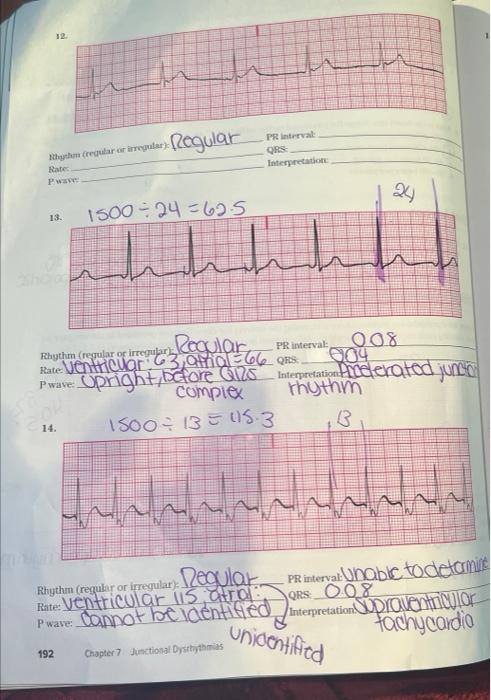 12.
Rhythm (regular or irregular): Regular PR interval:
Rate: QRS:
P wave: Interpretation:
24
13. 1500 ÷ 24 = 62.5
Rhythm (regular or irregular): Regular PR interval: 0.08
Rate: ventricular: 63, atrial = 66 QRS: 0.04
P wave: upright, before QRS complex Interpretation: Accelerated junctional rhythm
14. 1500 ÷ 13 = 115.3 13
Rhythm (regular or irregular): Regular PR interval: Unable to determine
Rate: ventricular 115, atrial: QRS: 0.08
P wave: Cannot be identified Interpretation: Supraventricular tachycardia
unidentified
192 Chapter 7 Junctional Dysrhythmias
1